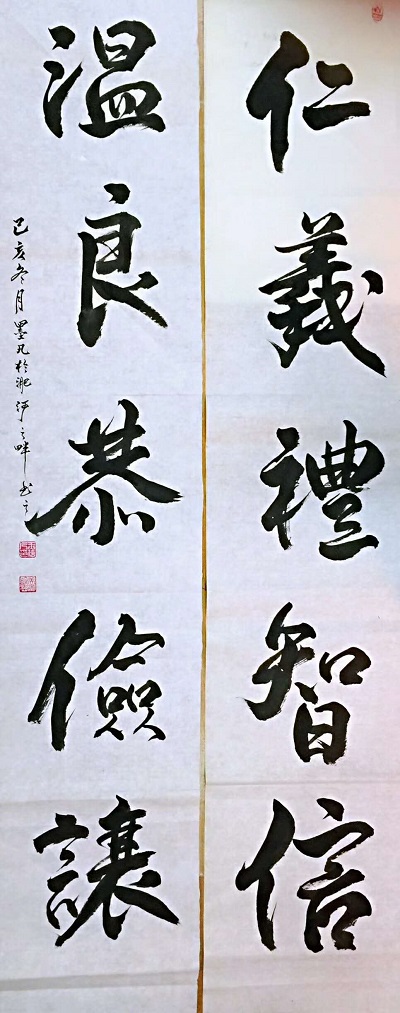 仁義禮智信
溫良恭儉讓
己亥冬月墨凡於淝河之畔書之